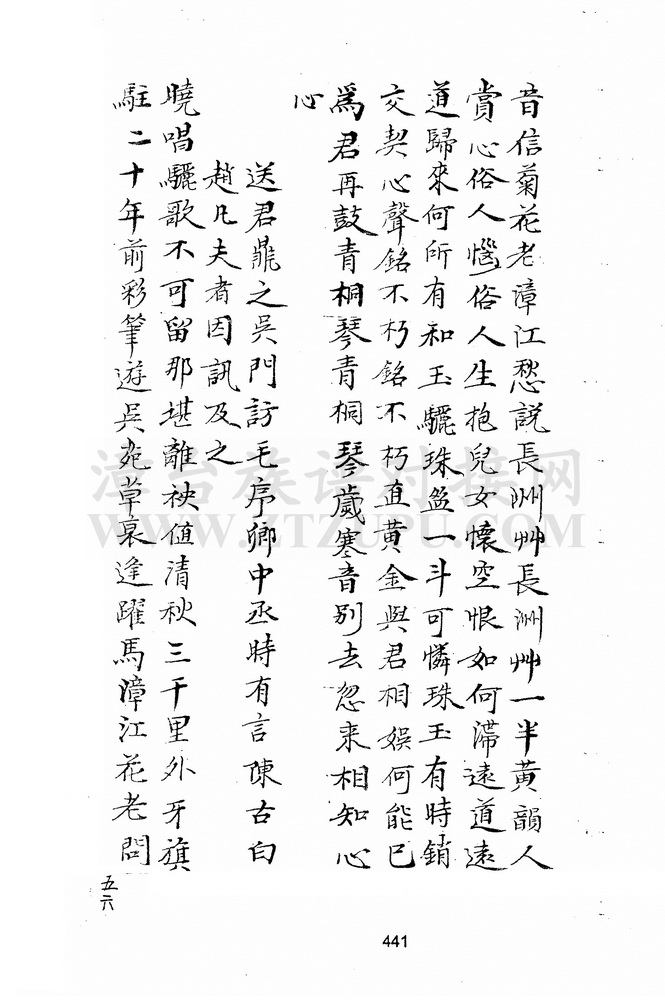 音信菊花老漳江愁説長洲艸長洲艸一半黄韻人
賞心俗人惱俗人生抱兒女懷空恨如何滯遠道遠
道歸來何所有和玉驪珠盈一斗可憐珠玉有時銷
交契心聲銘不朽銘不朽直黄金與君相娛何能已
爲君再鼓青桐琴青桐琴歲寒音别去忽来相知心
心
送君鼎之吴門訪毛序卿中丞時有言陳古白
趙凡夫者因訊及之
曉唱驪歌不可留那堪離袂值清秋三千里外牙旗
駐二十年前彩筆遊吴苑草裏逢躍馬漳江花老問
五六
441
漳台族谱对接网
WWW.ZTZUPU.COM